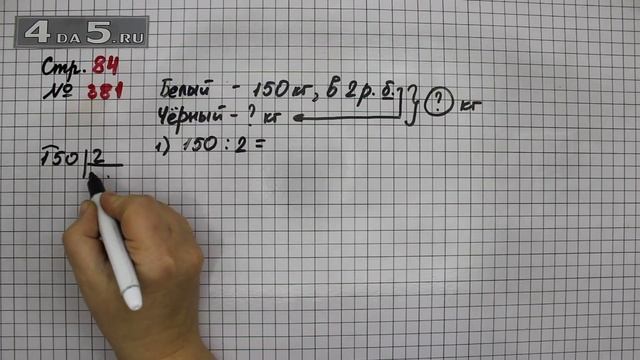 4 DA 5.RU
Стр. 84
№ 381
Белый - 150 кг, в 2 р. б.
Чёрный - ? кг
? кг
1) 150 : 2 =
150 2